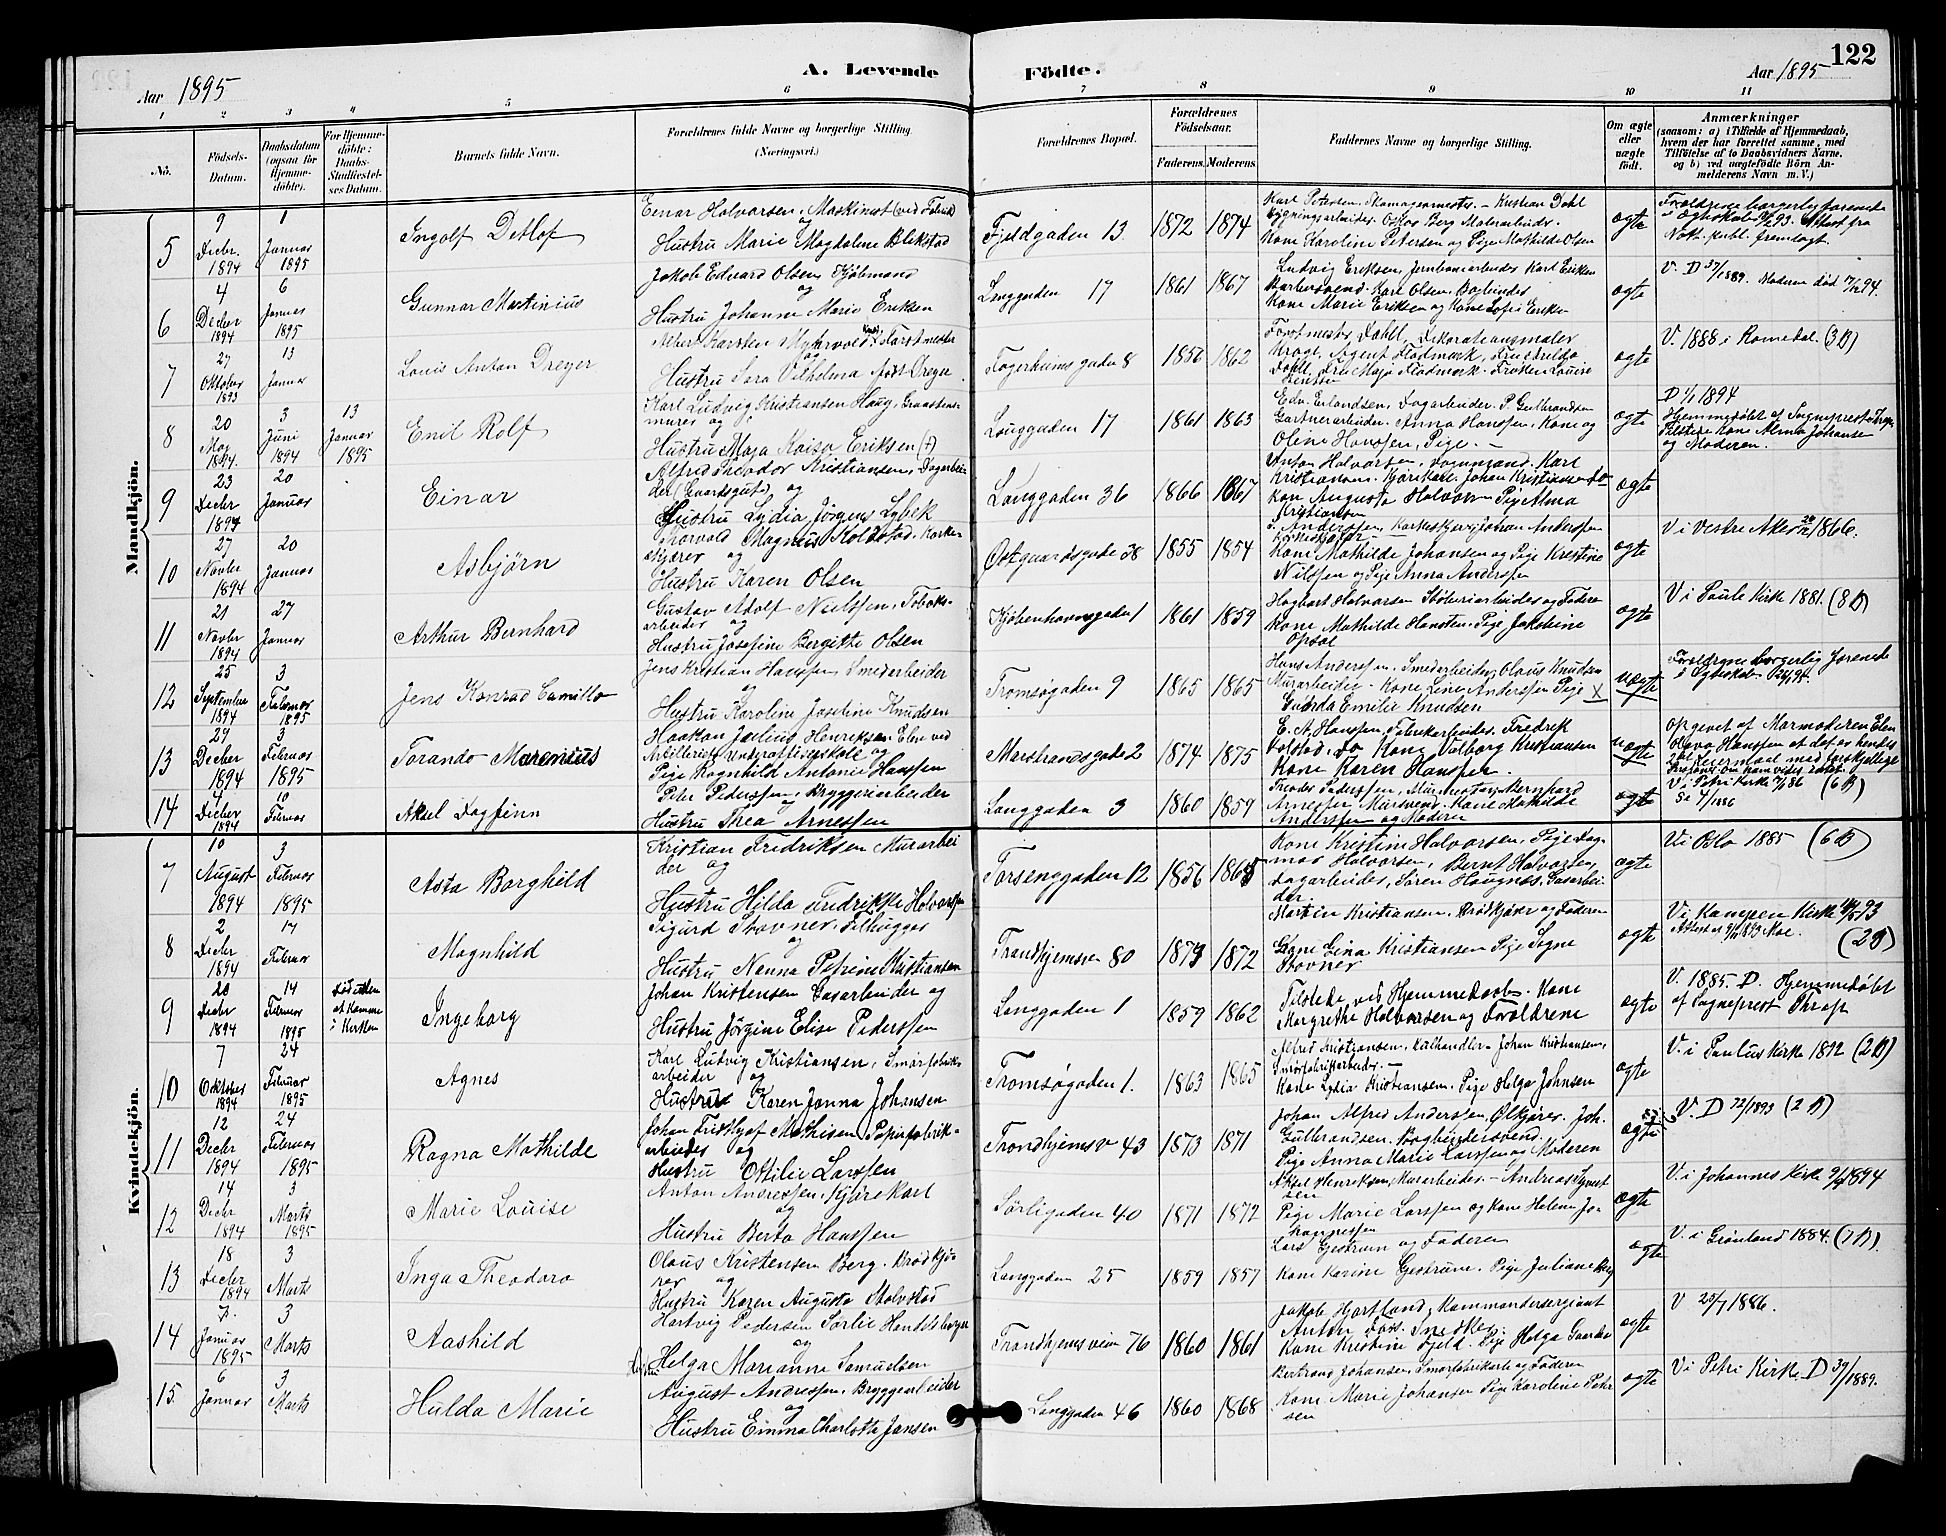 122
Aar 1895
A. Levende Födte.
Aar 1895
1 2 3 4 5 6 7 8 9 10 11
No.
Födsels-Datum.
Daabsdatum (ogsaa for Hjemmedöbte).
For Hjemmedöbte: Daabs-Stadfæstelses Datum.
Barnets fulde Navn.
Forældrenes fulde Navne og borgerlige Stilling.
(Næringsvei.)
Forældrenes Bopæl.
Forældrenes Födselsaar.
Faderens. Moderens.
Faddernes Navne og borgerlige Stilling.
Om ægte eller uægte födt.
Anmærkninger
(saasom: a) i Tilfælde af Hjemmedaab, hvem der har forrettet samme, med Tilföielse af to Daabsvidners Navne, og b) ved uægtefödte Börn Anmelderens Navn m. V.)
Mandkjön.
5 9 Decbr. 1894 1 Januar 1895 Ingolf Detlof
Einar Halvorsen, Maskinist (ved Fabrik)
og
Hustru Marie Magdalene Blekstad
Fjeldgaden 13 1872 1874
Karl Petersen, Skomagermester - Kristian Dahl
Bygningsarbeider. Oskar Berg Malerarbeider.
Kone Karoline Petersen og Pige Mathilde Olsen
ægte
6 4 Decbr 1894 6 Januar 1895 Gunnar Martinius
Jakob Edvard Olsen Kjöbmand
og
Hustru Johanne Marie Eriksen
Langgaden 17 1861 1867
Ludvig Eriksen, Jernbanearbeider Karl Eriksen
Barbersvend. Kone Olsen, Bogbinder
Kone Marie Eriksen og Kone Sofie Eriksen
ægte
V. D 37/1889. Moderen död 17/12 94.
7 27 Oktober 1893 13 Januar Louis Anton Dreyer
Albert Karsten Myhrvold, Forstmester
og
Hustru Sara Vilhelma födt Dreyer
Fagerheimsgaden 8 1856 1862
Forstmester Dahll, Dekorationsmaler
Krogl. Agent Flodmark, Fru Hilda
Dahll, Fru Maja Flodmark. Fröken Louise
ægte
V. 1888 i Romedal. (3 B)
8 20 Maj 1894 3 Juni 1894 13 Januar 1895 Emil Rolf
Karl Ludvig Kristiansen Haug, Graastensmurer og
Hustru Maja Kaisa Eriksen (+)
Langgaden 17 1861 1863
Edv. Erlandsen, Dagarbeider. P. Gulbrandsen
Gartnerarbeider. Anna Hanssen, Kone og
Oline Hanssen, Pige.
ægte
D 1/1 1894
Hjemmedöbt af Sogneprest Thrap.
Tilstede Kone Alma Johansen
og Moderen.
9 23 Decbr 1894 20 Januar Einar
Alfred Theodor Kristiansen, Dagarbeider (Gaardsgut) og
Hustru Lydia Jörgens Lybek
Langgaden 36 1866 1867
Anton Halvorsen, Dagmand. Karl
Kristiansen, Kjörekarl, Johan Kristiansen do
Kone Augusta Halvorsen Pige Alma
Kristiansen
ægte
10 27 Novbr 1894 20 Januar Asbjörn
Thorvald Magnus Koldstad, Korkeskjærer og
Hustru Karen Olsen
Östgaardsgade 38 1855 1854
Anderssen, Korkeskjærer Johan Anderssen
Kone Mathilde Johansen og Pige Kristine
Nilssen og Pige Anna Anderssen
ægte
V i Vestre Aker 1866.
11 21 Novbr 1894 27 Januar Arthur Bernhard
Gustav Adolf Nielssen, Tobaksarbeider og
Hustru Josefine Bergitte Olsen
Kjöbenhavnsgaden 1 1861 1859
Hagbart Halvorsen Stöberiarbeider og Faderen
Kone Mathilde Hansten. Pige Jakobine
Opsal
ægte
V i Pauls Kirke 1881. (8 B)
12 25 September 1894 3 Februar 1895 Jens Konrad Camillo
Jens Kristian Hanssen Smedarbeider
og
Hustru Karoline Josefine Knudsen
Tromsögaden 9 1865 1865
Hans Anderssen, Smedarbeider, Olaus Knudsen
Murarbeider. Kone Line Anderssen Pige
Emilie Knudsen
uægte
13 29 Decber 1894 3 Februar 1895 Torando Marenius
Haakon Julius Henriksen Elev ved
Artilleriets Underofficersskole og
Pige Ragnhild Antonie Hanssen
Marstrandsgade 2 1874 1875
E. A. Hanssen, Fabrikarbeider. Fredrik
Volstad, do Kone Valborg Kristiansen
Kone Karen Hanssen.
uægte
Opgivet af Mormoderen Elen
14 4 Decber 1894 10 Februar Aksel Dagfinn
Peter Pedersen, Bryggeriarbeider
og
Hustru Thea Arnessen
Langgaden 3 1860 1859
Arnessen, Mursvend. Kone Mathilde
Anderssen og Moderen
ægte
V i Petri Kirke 7/86 (6 B)
Kvindekjön.
7 10 August 1894 3 Februar 1895 Asta Borghild
Kristian Fredriksen Murarbeider og
Hustru Hilda Fredrikke Halvorsen
Torsenggaden 12 1856 1865
Kone Kristine Halvorsen, Pige Dagmar Halvorsen, Bernt Halvorsen,
Dagarbeider, Sören Haugnæs, Gasarbeider.
ægte
V i Oslo 1885 (6 B)
8 2 Decbr 1894 17 Februar Magnhild
Sigurd Stovner, Filhugger
og
Hustru Nanna Petrine Kristiansen
Trondhjemsvn 80 1873 1872
Martin Kristiansen, Brödkjörer og Faderen
Kone Lina Kristiansen Pige Signe
Stovner
ægte
V i Kampen Kirke 93
(2 B)
9 20 Decbr 1894 14 Februar 1895 Död uden at komme i Kirken Ingeborg
Johan Kristensen Gasarbeider og
Hustru Jörgine Elise Pederssen
Langgaden 1 1859 1862
Tilstede ved Hjemmedaab. Kone
Margrethe Halvorsen og Forældrene
ægte
V. 1885. D. Hjemmedöbt
af Sogneprest Thrap
10 7 Oktober 1894 24 Februar 1895 Agnes
Karl Ludvig Kristiansen, Smörfabrikarbeider og
Hustru Karen Janna Johansen
Tromsögaden 1. 1863 1865
Alfred Kristiansen, Kulhandler. Johan Kristiansen,
Smörfabrikarbeider.
Kone Lydia Kristiansen. Pige Helga Johnsen
ægte
V. i Paulus Kirke 1892 (2 B)
11 12 Decbr 1894 24 Februar 1895 Ragna Mathilde
Johan Fridthjof Mathisen Papirfabrikarbeider og
Hustru Ottilie Larssen
Trondhjemsv 43 1873 1871
Johan Alfred Anderssen, Ölkjörer. Joh.
Gulbrandsen. Bogbindersvend
Pige Anna Marie Larssen og Moderen
ægte
V. D 72/1893 (2 B)
12 14 Decbr 1894 3 Marts 1895 Marie Louise
Anton Andressen, Kjörekarl
og
Hustru Berta Hanssen
Sörligaden 40 1871 1872
Aksel Henriksen, Murarbeider. - Andreas Syvertsen
Pige Marie Larssen og Kone Helene Johannessen
ægte
V. i Johannes Kirke 9/4 1894
13 18 Decbr 1894 3 Marts Inga Theodora
Olaus Kristensen Berg. Brödkjörer og
Hustru Karen Augusta Molvstad
Langgaden 25 1859 1857
Lars Gjestrum og Faderen
Kone Karine Gjestrum. Pige Juliane Berg
ægte
V. i Grönland 1884. (7 B).
14 7. Januar 1895 3 Marts Aashild
Hartvig Pedersen Sörlie Handelsborger
og
Hustru Helga Marianne Samuelsen
Trondhjemsveien 76 1860 1861
Jakob Hjartland, Kommandersergiant
Anton Foss. Snedker.
Kone Kristine Fjeld. Pige Helga Gaarder
ægte
V 25/7 1886.
15. 6 Januar 3 Marts Hulda Marie
August Andressen, Bryggerarbeider
og
Hustru Emma Charlotta Jansen
Langgaden 46 1860 1868
Bertrand Johansen, Smörfabrikarb og Faderen
Kone Marie Johansen Pige Karoline Pettersen
ægte
V i Petri Kirke D 39/1889.